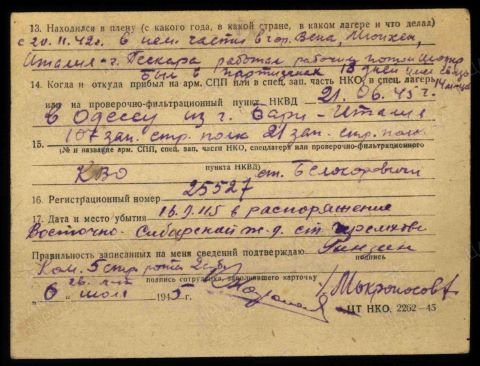 13. Находился в плену (с какого года, в какой стране, в каком лагере и что делал)
с 20.11.42г. в нем. части в гор. Вена, Мюнхен,
Италия г. Пескара работал рабочим потом
был в партизанах 18 дней
14. Когда и откуда прибыл на арм. СПП или в спец. зап. часть НКО, в спец. лагерь
или на проверочно-фильтрационный пункт НКВД 21.06.45 г.
в Одессу из г. Бари - Италия
15. 107 зап. стр. полк 21 зап. стр. полк
(№ и название арм. СПП, спец. зап. части НКО, спецлагеря или проверочно-фильтрационного
пункта НКВД)
КВО ст. Белокоровичи
16. Регистрационный номер 25527
17. Дата и место убытия в распоряжение
Восточно-Сибирской ж.д. ст.
Правильность записанных на меня сведений подтверждаю
подпись
Ком. 5 стр роты
подпись сотрудника, заполнявшего карточку
6 июля 1945 г.
ЦТ НКО, 2262-45